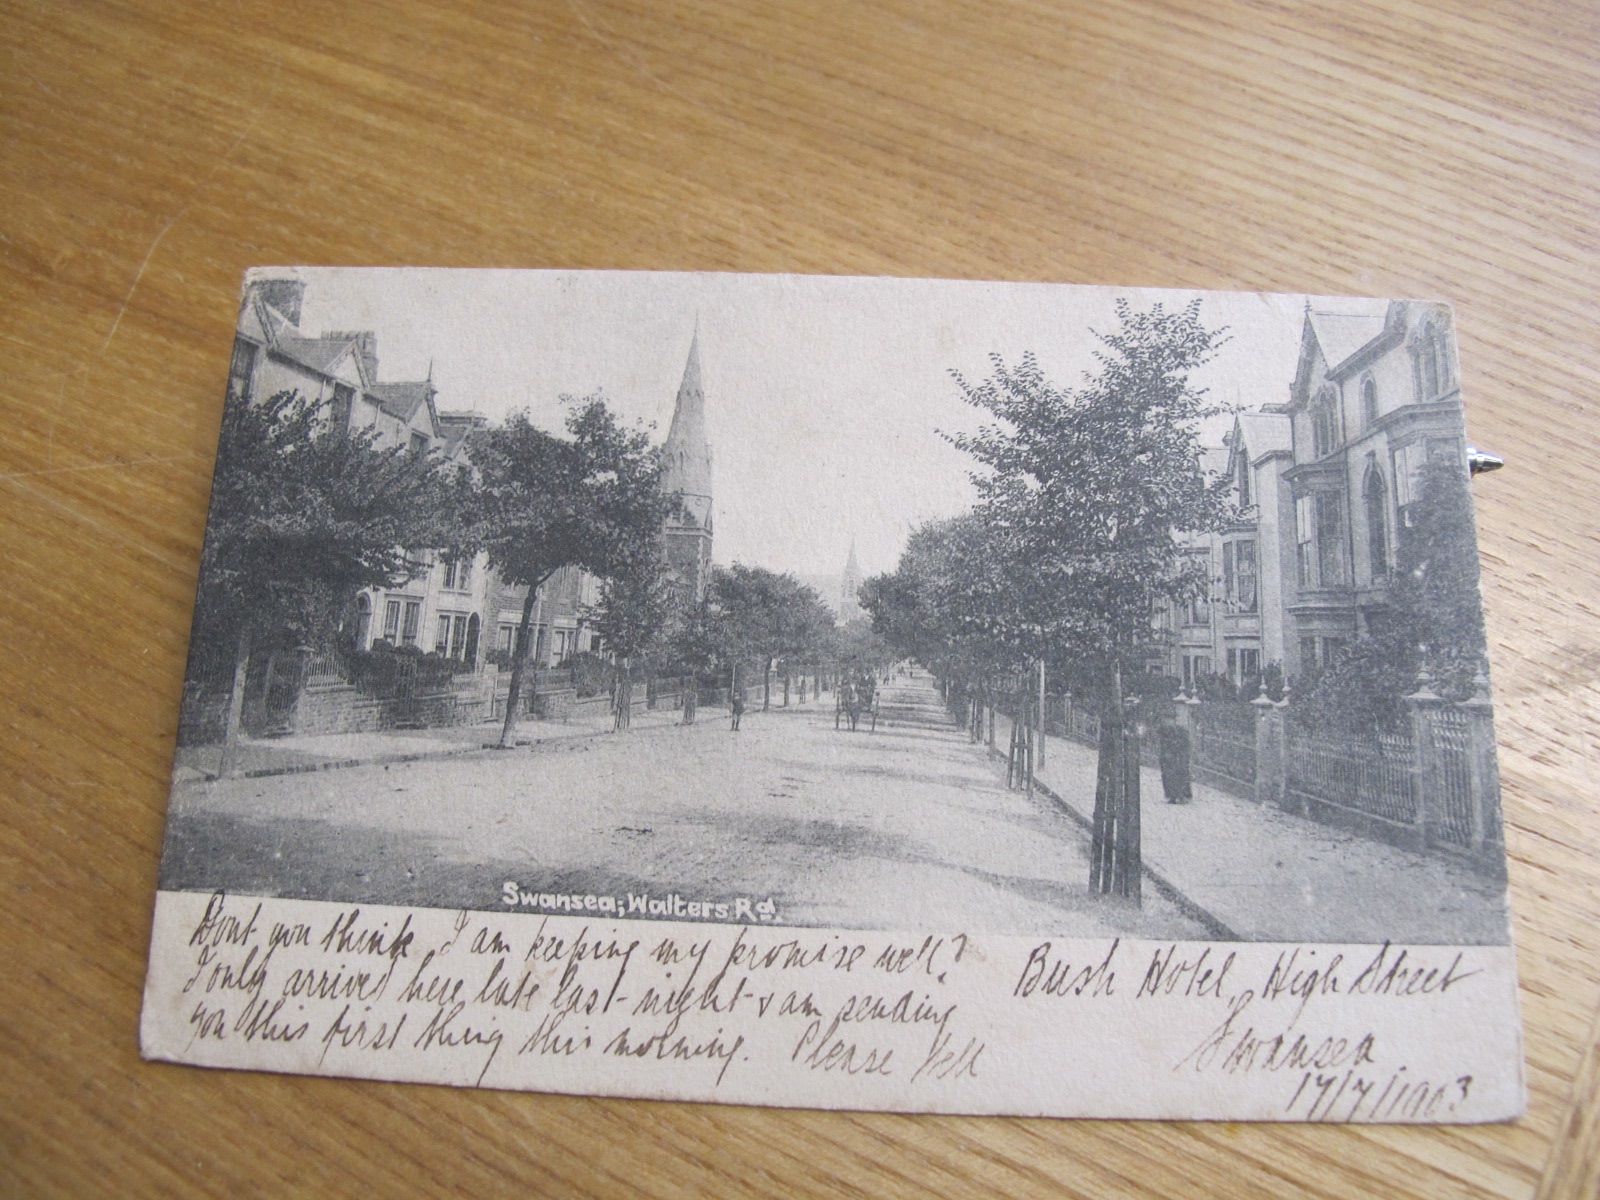 Swansea; Walters Rd.
Dont you think I am keeping my promise well?
I only arrived here late last-night & am sending
you this first thing this morning. Please tell
Bush Hotel, High Street
Swansea
17/7/1903